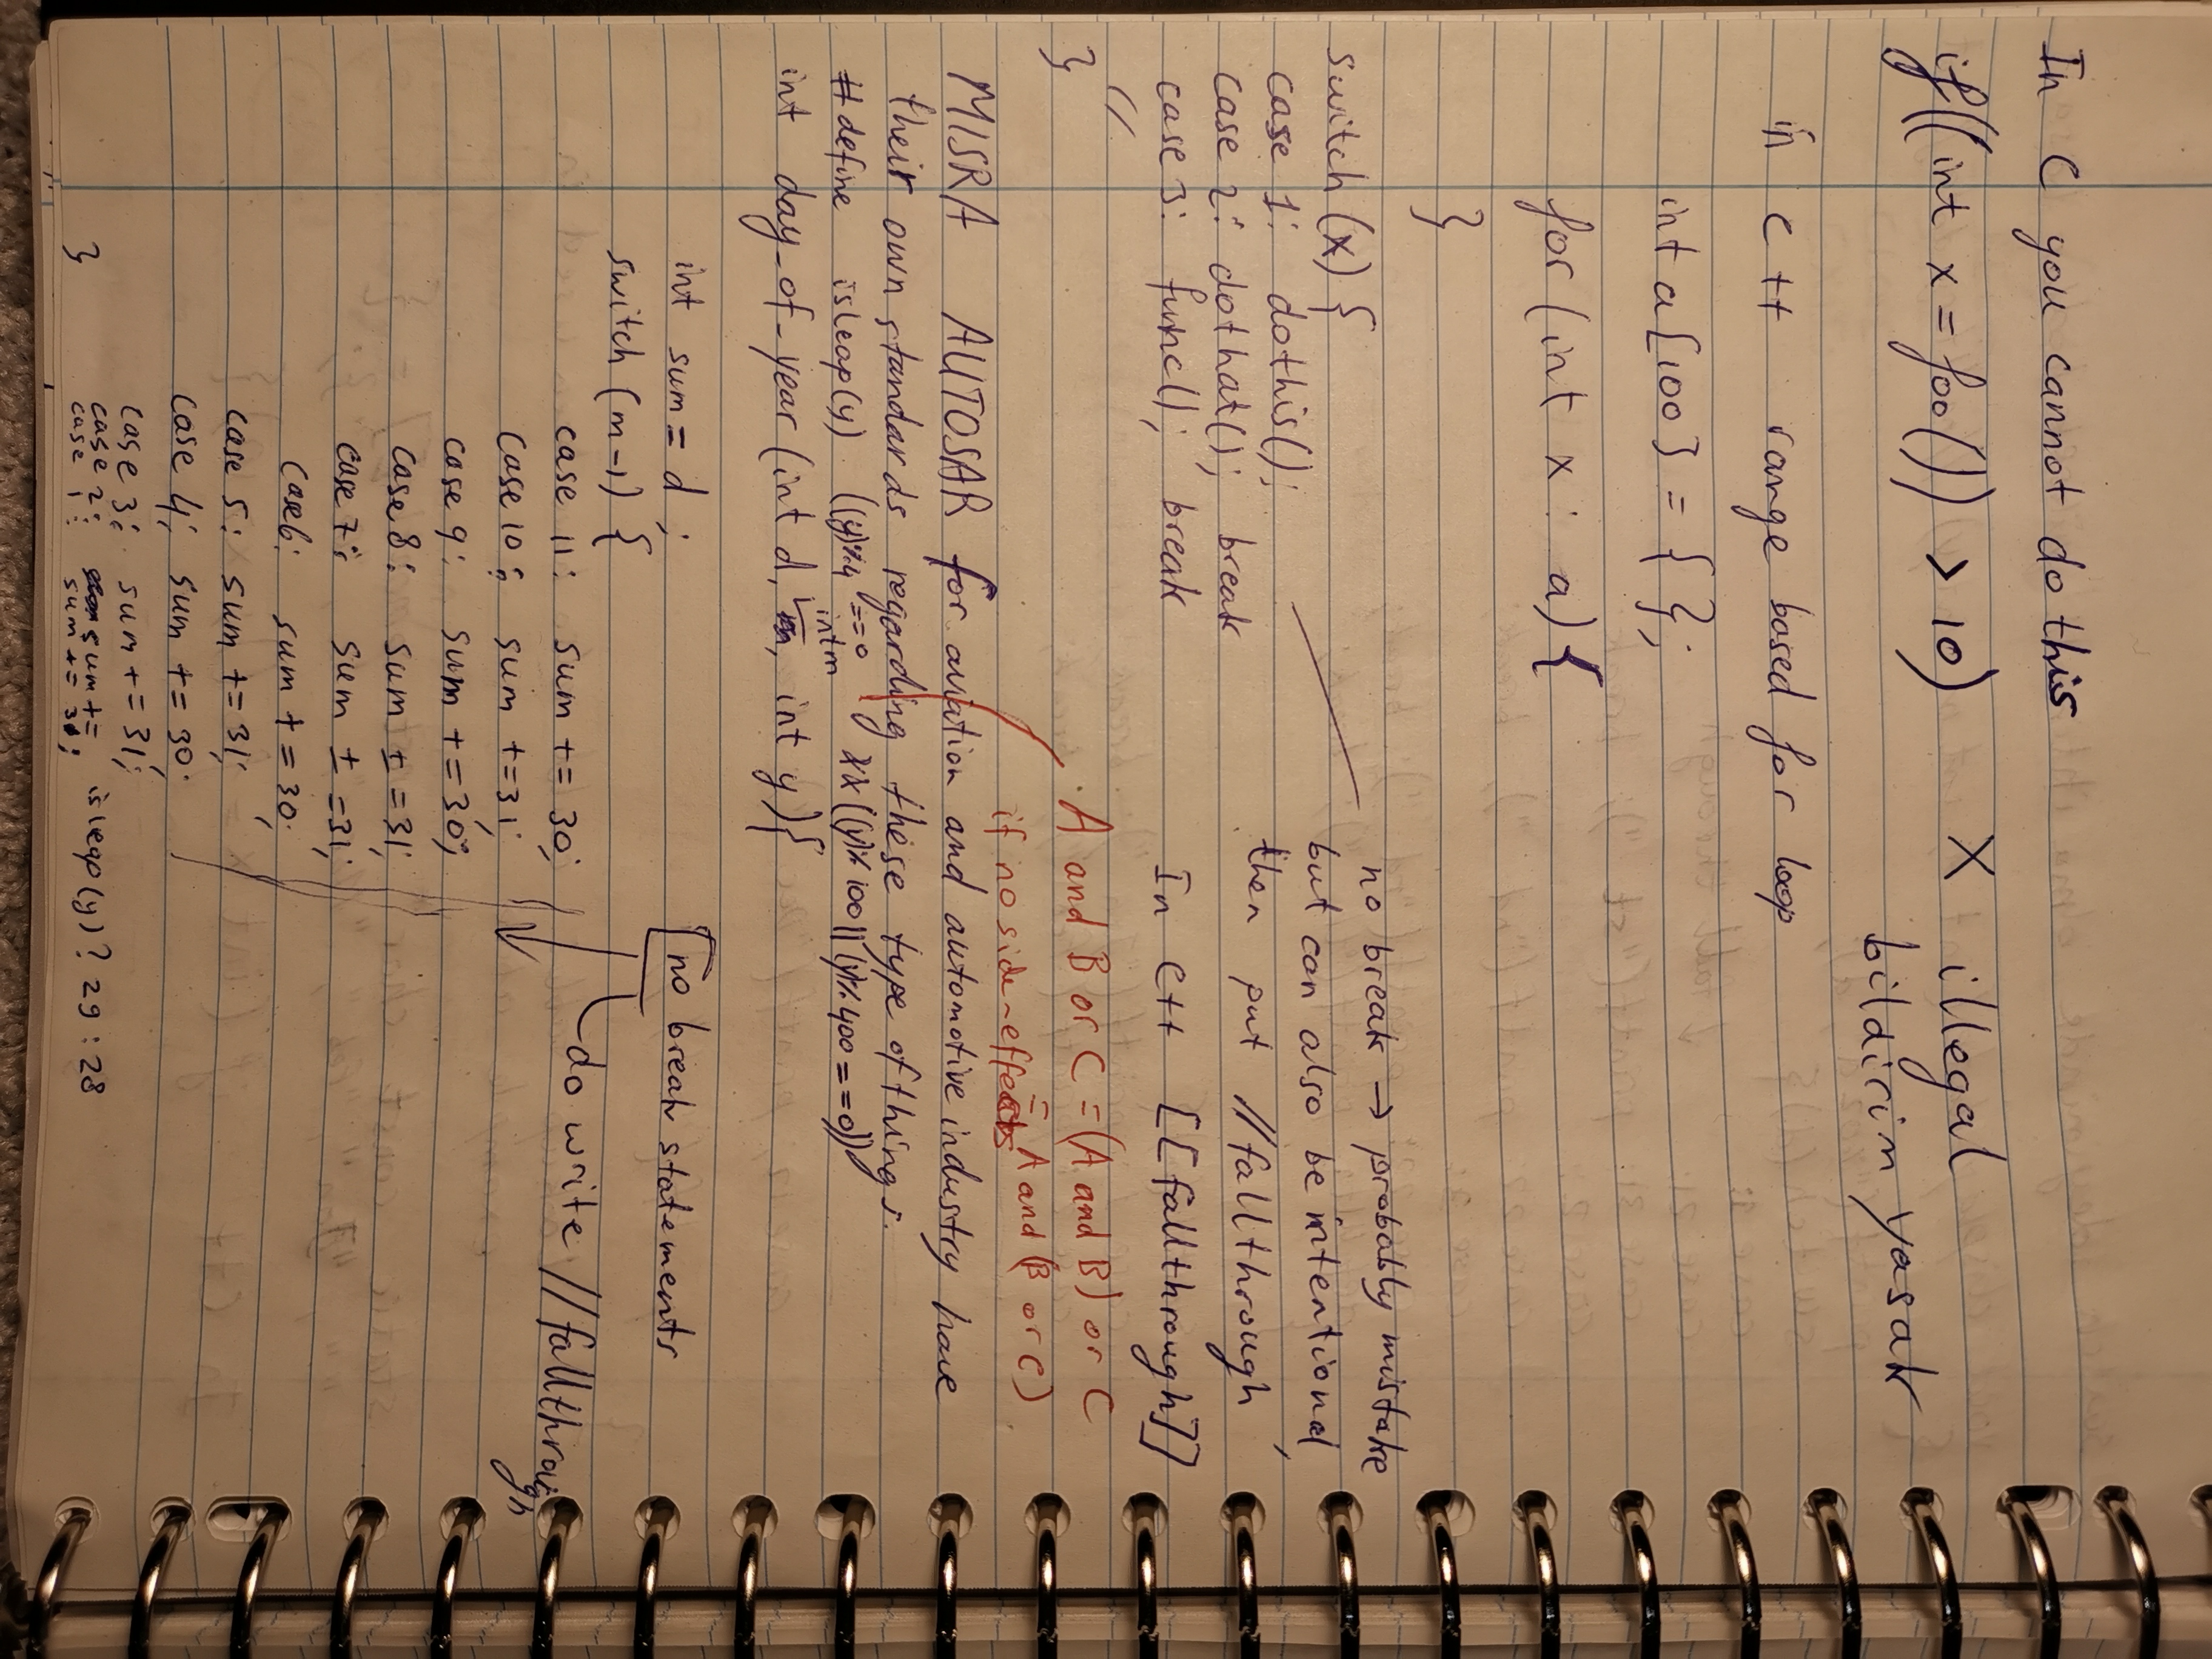 In C you cannot do this
if((int x = foo()) > 10) X illegal
bildirim yasak
in c++ range based for loop
int a[100] = { };
for (int x : a) {
}
switch (x) {
case 1: dothis();
case 2: dothat(); break
case 3: func(); break
//
}
no break → probably mistake
but can also be intentional,
then put //fallthrough
In C++ [[fallthrough]]
A and B or C = (A and B) or C
= A and (B or C)
if no side-effects
MISRA AUTOSAR for aviation and automotive industry have
their own standards regarding these type of things.
#define isleap(y) ((y)%4 ==0 && ((y)% 100 || (y)% 400 == 0))
int m
int day_of_year (int d, m, int y){
int sum = d ;
switch (m-1) {
case 11: sum += 30;
case 10: sum +=31;
case 9: sum +=30;
case 8: sum += 31;
case 7: sum += 31;
case 6: sum += 30;
case 5: sum += 31;
case 4; sum += 30;
case 3: sum += 31;
case 2: sum += isleap(y)? 29 : 28
case 1: sum += 31;
}
[no break statements
do write //fallthrough